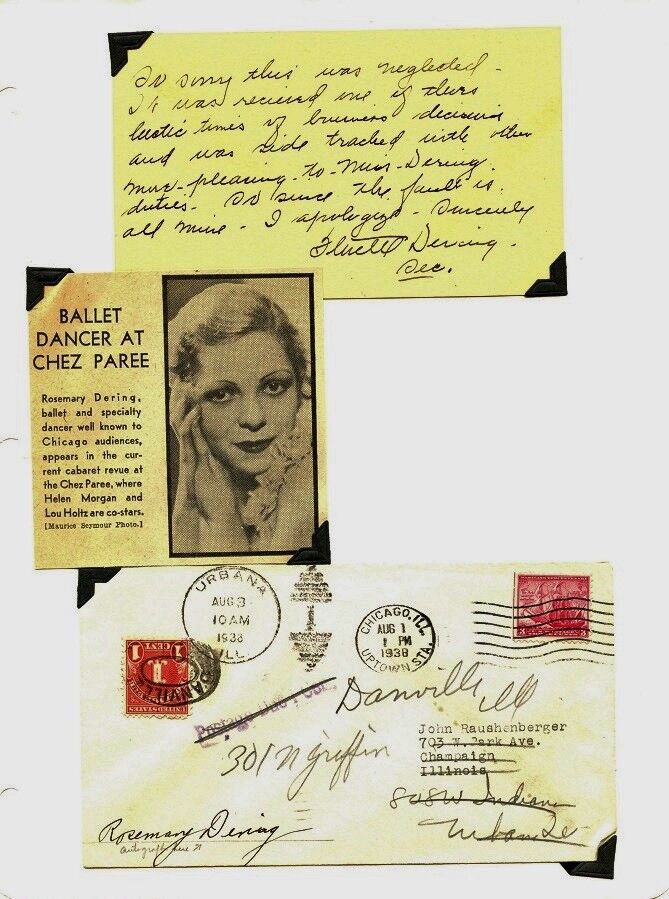 So sorry this was neglected -
It was recieved one of those
hectic times of business decisions
and was side tracked with other
more - pleasing - to - Miss - Dering
duties. So since the fault is
all mine - I apologize - Sincerely
Dering -
Sec.
BALLET
DANCER AT
CHEZ PAREE
Rosemary Dering,
ballet and specialty
dancer well known to
Chicago audiences,
appears in the cur-
rent cabaret revue at
the Chez Paree, where
Helen Morgan and
Lou Holtz are co-stars.
[Maurice Seymour Photo.]
URBANA
AUG 3
10 AM
1938
ILL.
CHICAGO, ILL.
AUG 1
1 PM
1938
UPTOWN STA.
3
1 CENT 1
UNITED STATES
DANVILLE
Postage Due
Danville Ill
301 N Griffin
John Raushenberger
703 W. Park Ave.
Champaign
Illinois
808 W Indiana
Urbana
Rosemary Dering
autograph here